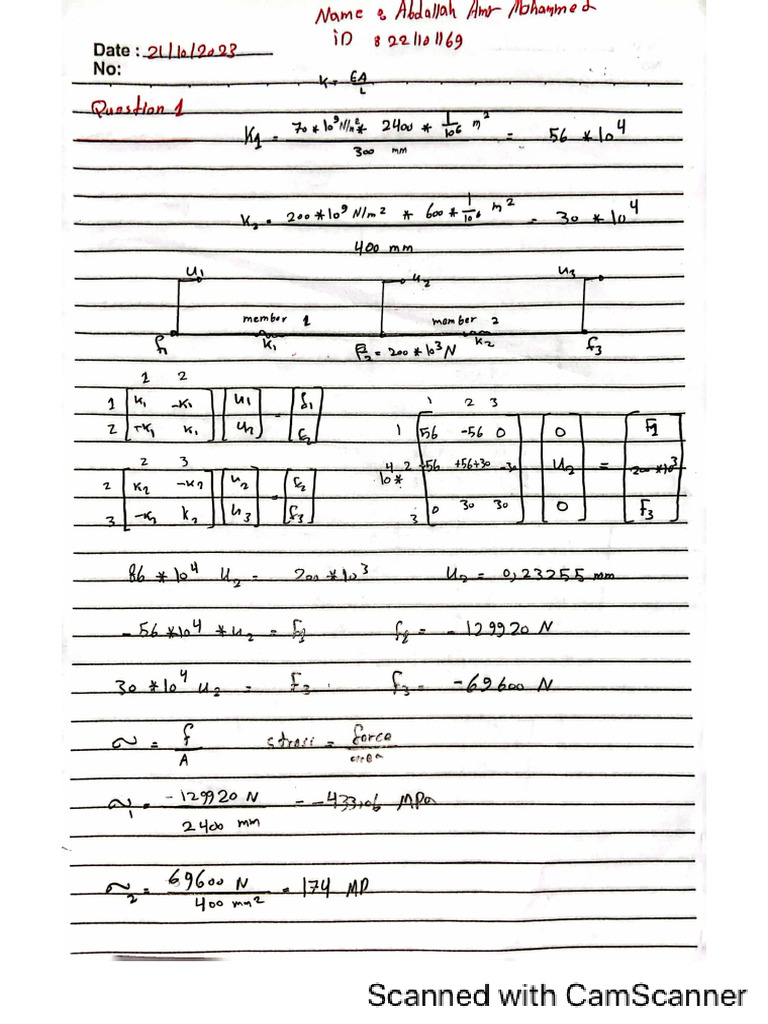 Name : Abdallah Amr Mohammed
iD : 22110169
Date : 21/10/2023
No:
K = EA/L
Question 1
K1 = 70 * 10^9 N/m^2 * 2400 * 1/10^6 m^2 / 300 mm = 56 * 10^4
K2 = 200 * 10^9 N/m^2 * 600 * 1/10^6 m^2 / 400 mm = 30 * 10^4
u1 u2 u3
member 1 member 2
f1 K1 F2 = 200 * 10^3 N K2 f3
1 2
1 K1 -K1 u1 = f1
2 -K1 K1 u2 f2
2 3
2 K2 -K2 u2 = f2
3 -K2 K2 u3 f3
1 2 3
1 56 -56 0 0 F1
10^4 * 2 -56 +56+30 -30 u2 = 200 * 10^3
3 0 30 30 0 F3
86 * 10^4 u2 = 200 * 10^3 u2 = 0,23255 mm
-56 * 10^4 * u2 = f1 f1 = -129920 N
30 * 10^4 u2 = F3 f3 = -69600 N
σ = f/A stress = force/area
σ1 = -129920 N / 2400 mm = -433,06 MPa
σ2 = 69600 N / 400 mm^2 = 174 MP
Scanned with CamScanner